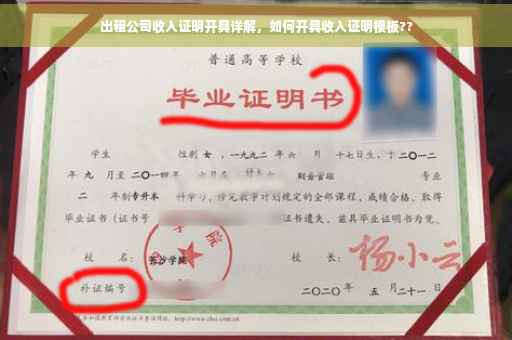 出租公司收入证明开具详解，如何开具收入证明模板??
普通高等学校
毕业证明书
学生 性别 女，一九九二年 六 月 十七日生，于 二〇一二
年 九 月至 二〇一四 年 六月在 财务管理 专业
二 年制 专升本 科学习，修完教学计划规定的全部课程，成绩合格，取得
毕业证书（证书号 证书遗失，兹具毕业证明书为凭。
校 名： 长沙学院 校 长： 杨小云
补证编号 二〇二〇年 五 月 二十一 日